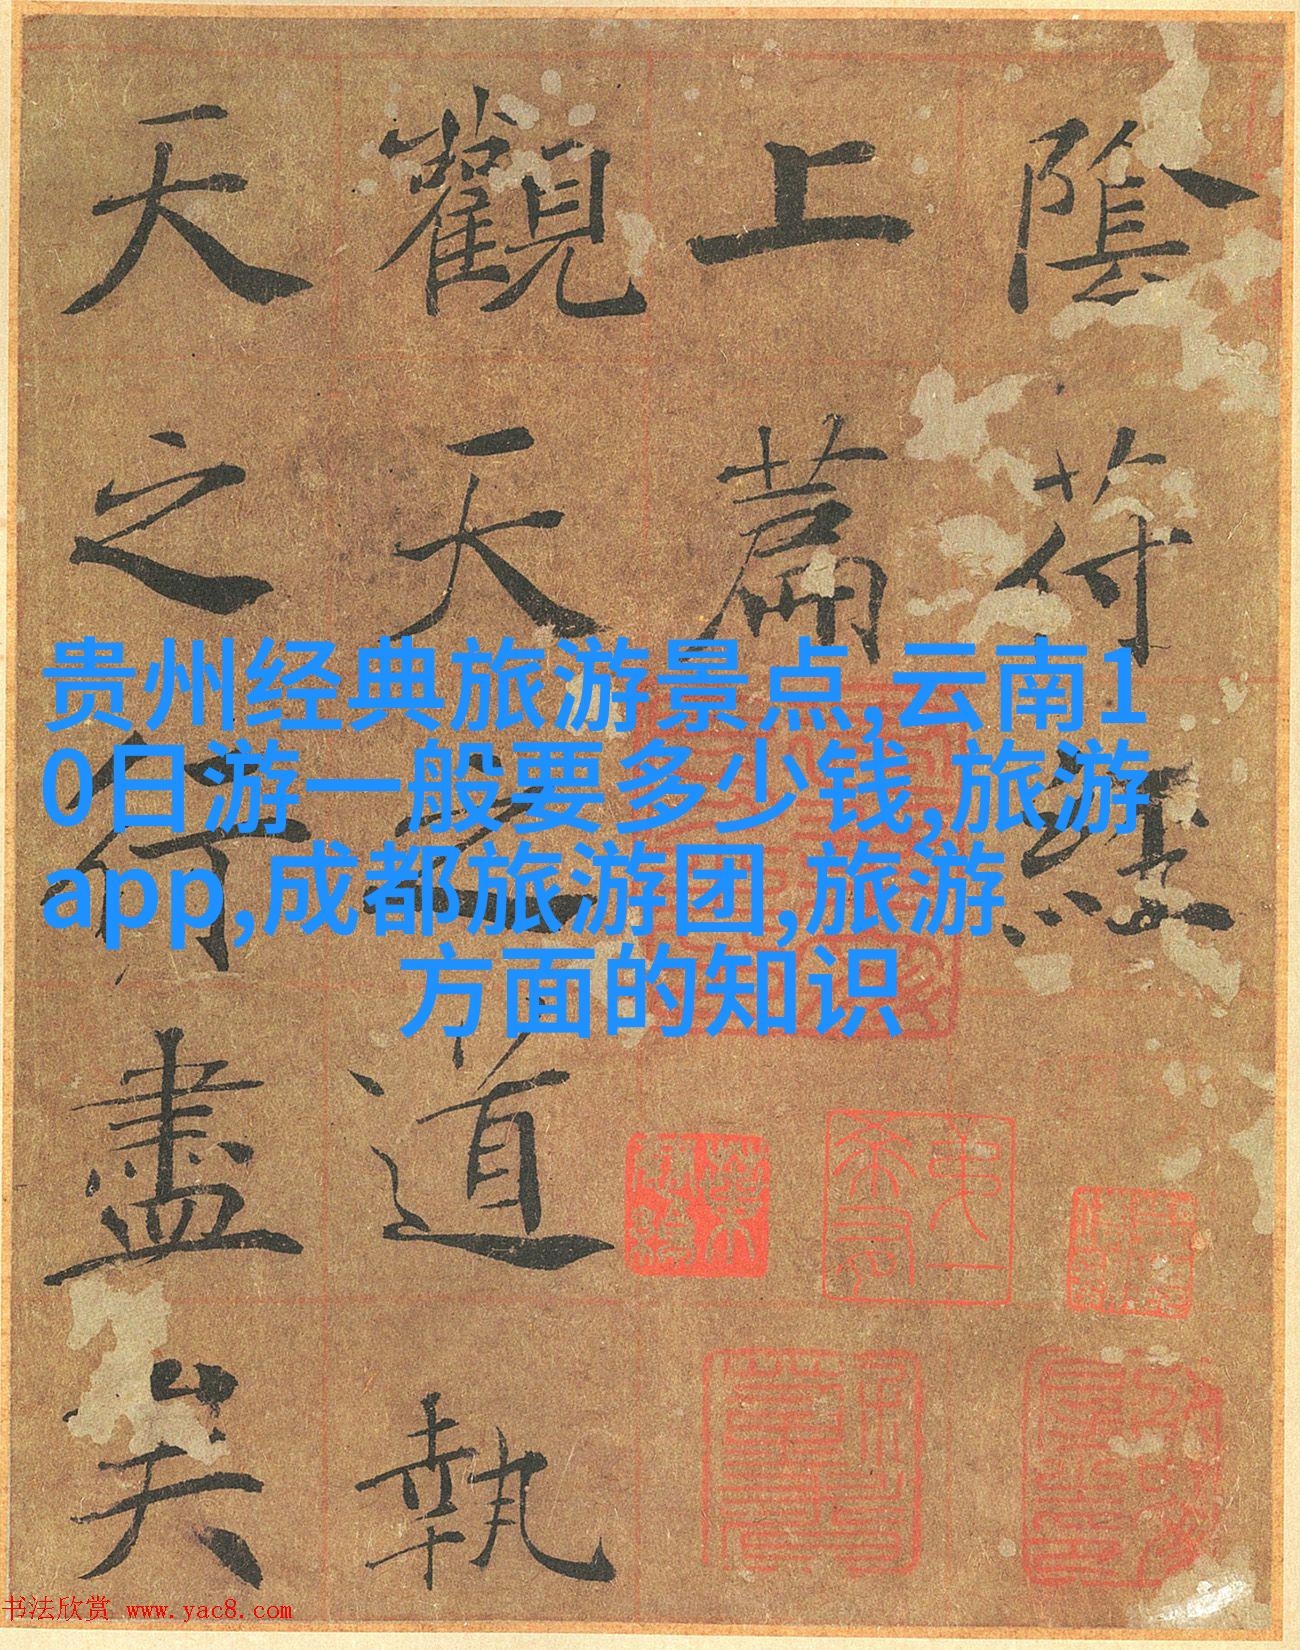 隂苻經
上萹
觀天之道執
天之行盡矣
贵州经典旅游景点,云南1
0日游一般要多少钱,旅游
app,成都旅游团,旅游
方面的知识
书法欣赏 www.yac8.com